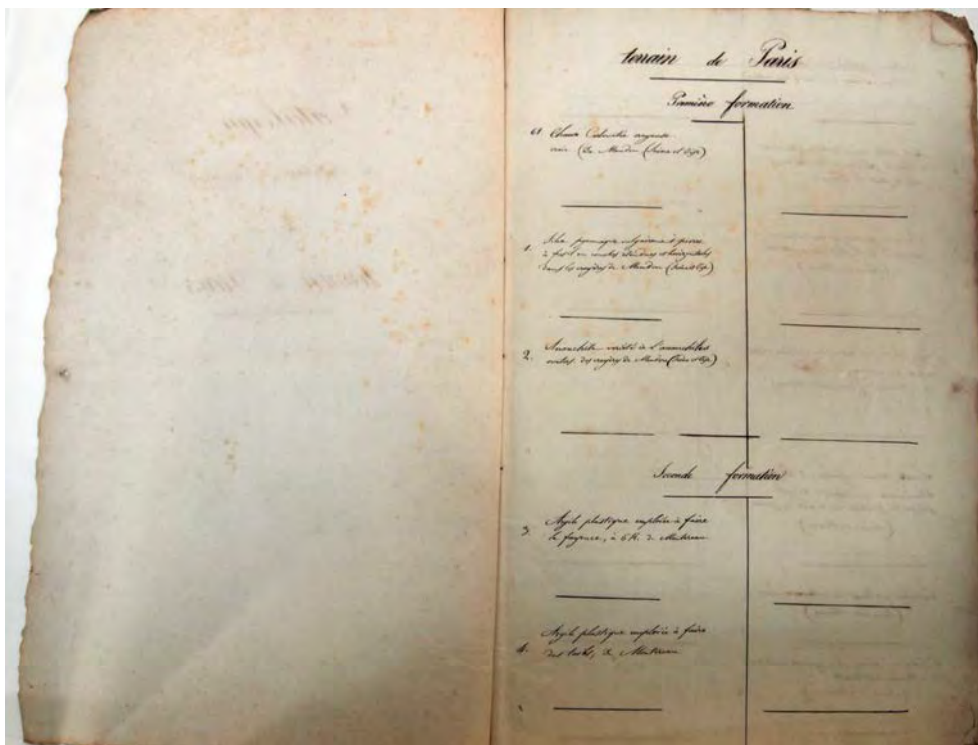 terrain de Paris
Première formation
Chaux Carbonatée
craie (de Meudon (Seine et Oise)
1. Silex pyromaque vulgairement pierre
à fusil en couches étendues et horizontales
dans les crayères de Meudon (Seine et Oise)
2. Ananchite variété de l'ananchites
ovatus des crayères de Meudon (Seine et Oise)
Seconde formation
3. Argile plastique employée à faire
la fayence, à 6 K. de Montereau
4. Argile plastique employée à faire
de Montereau